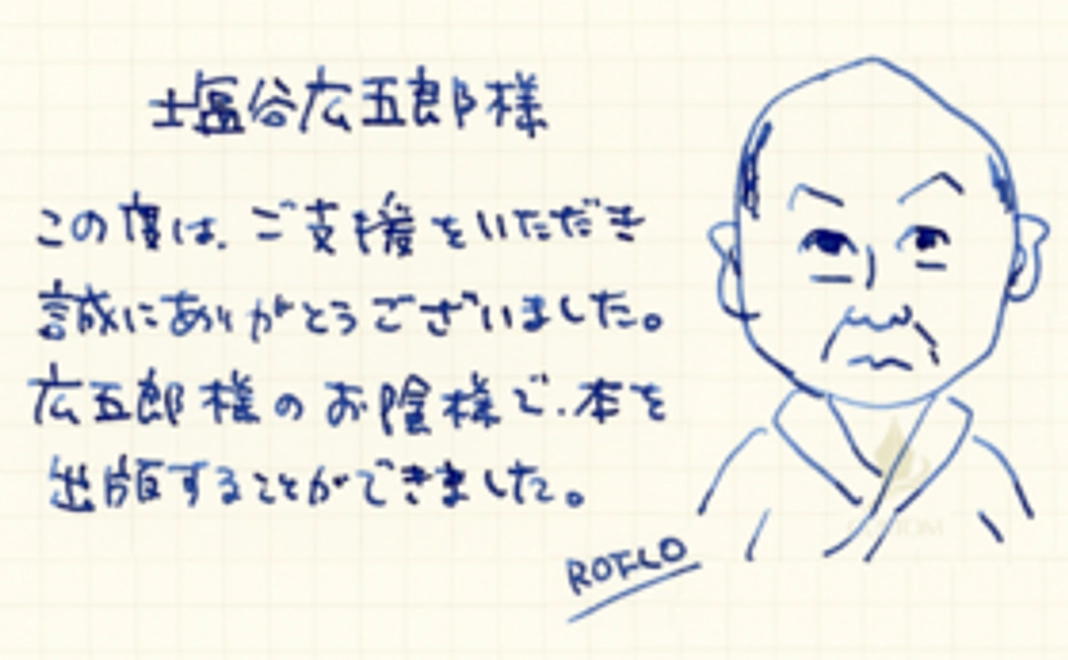 塩谷広五郎様
この度は、ご支援をいただき
誠にありがとうございました。
広五郎様のお陰様で、本を
出版することができました。